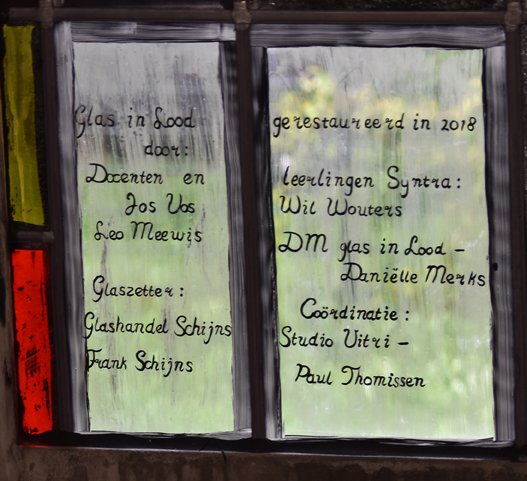 Glas in Lood gerestaureerd in 2018
door:
Docenten en leerlingen Syntra:
Jos Vos Wil Wouters
Leo Meewis DM glas in Lood –
Daniëlle Merks
Glaszetter: Coördinatie:
Glashandel Schijns Studio Vitri –
Frank Schijns Paul Thomissen